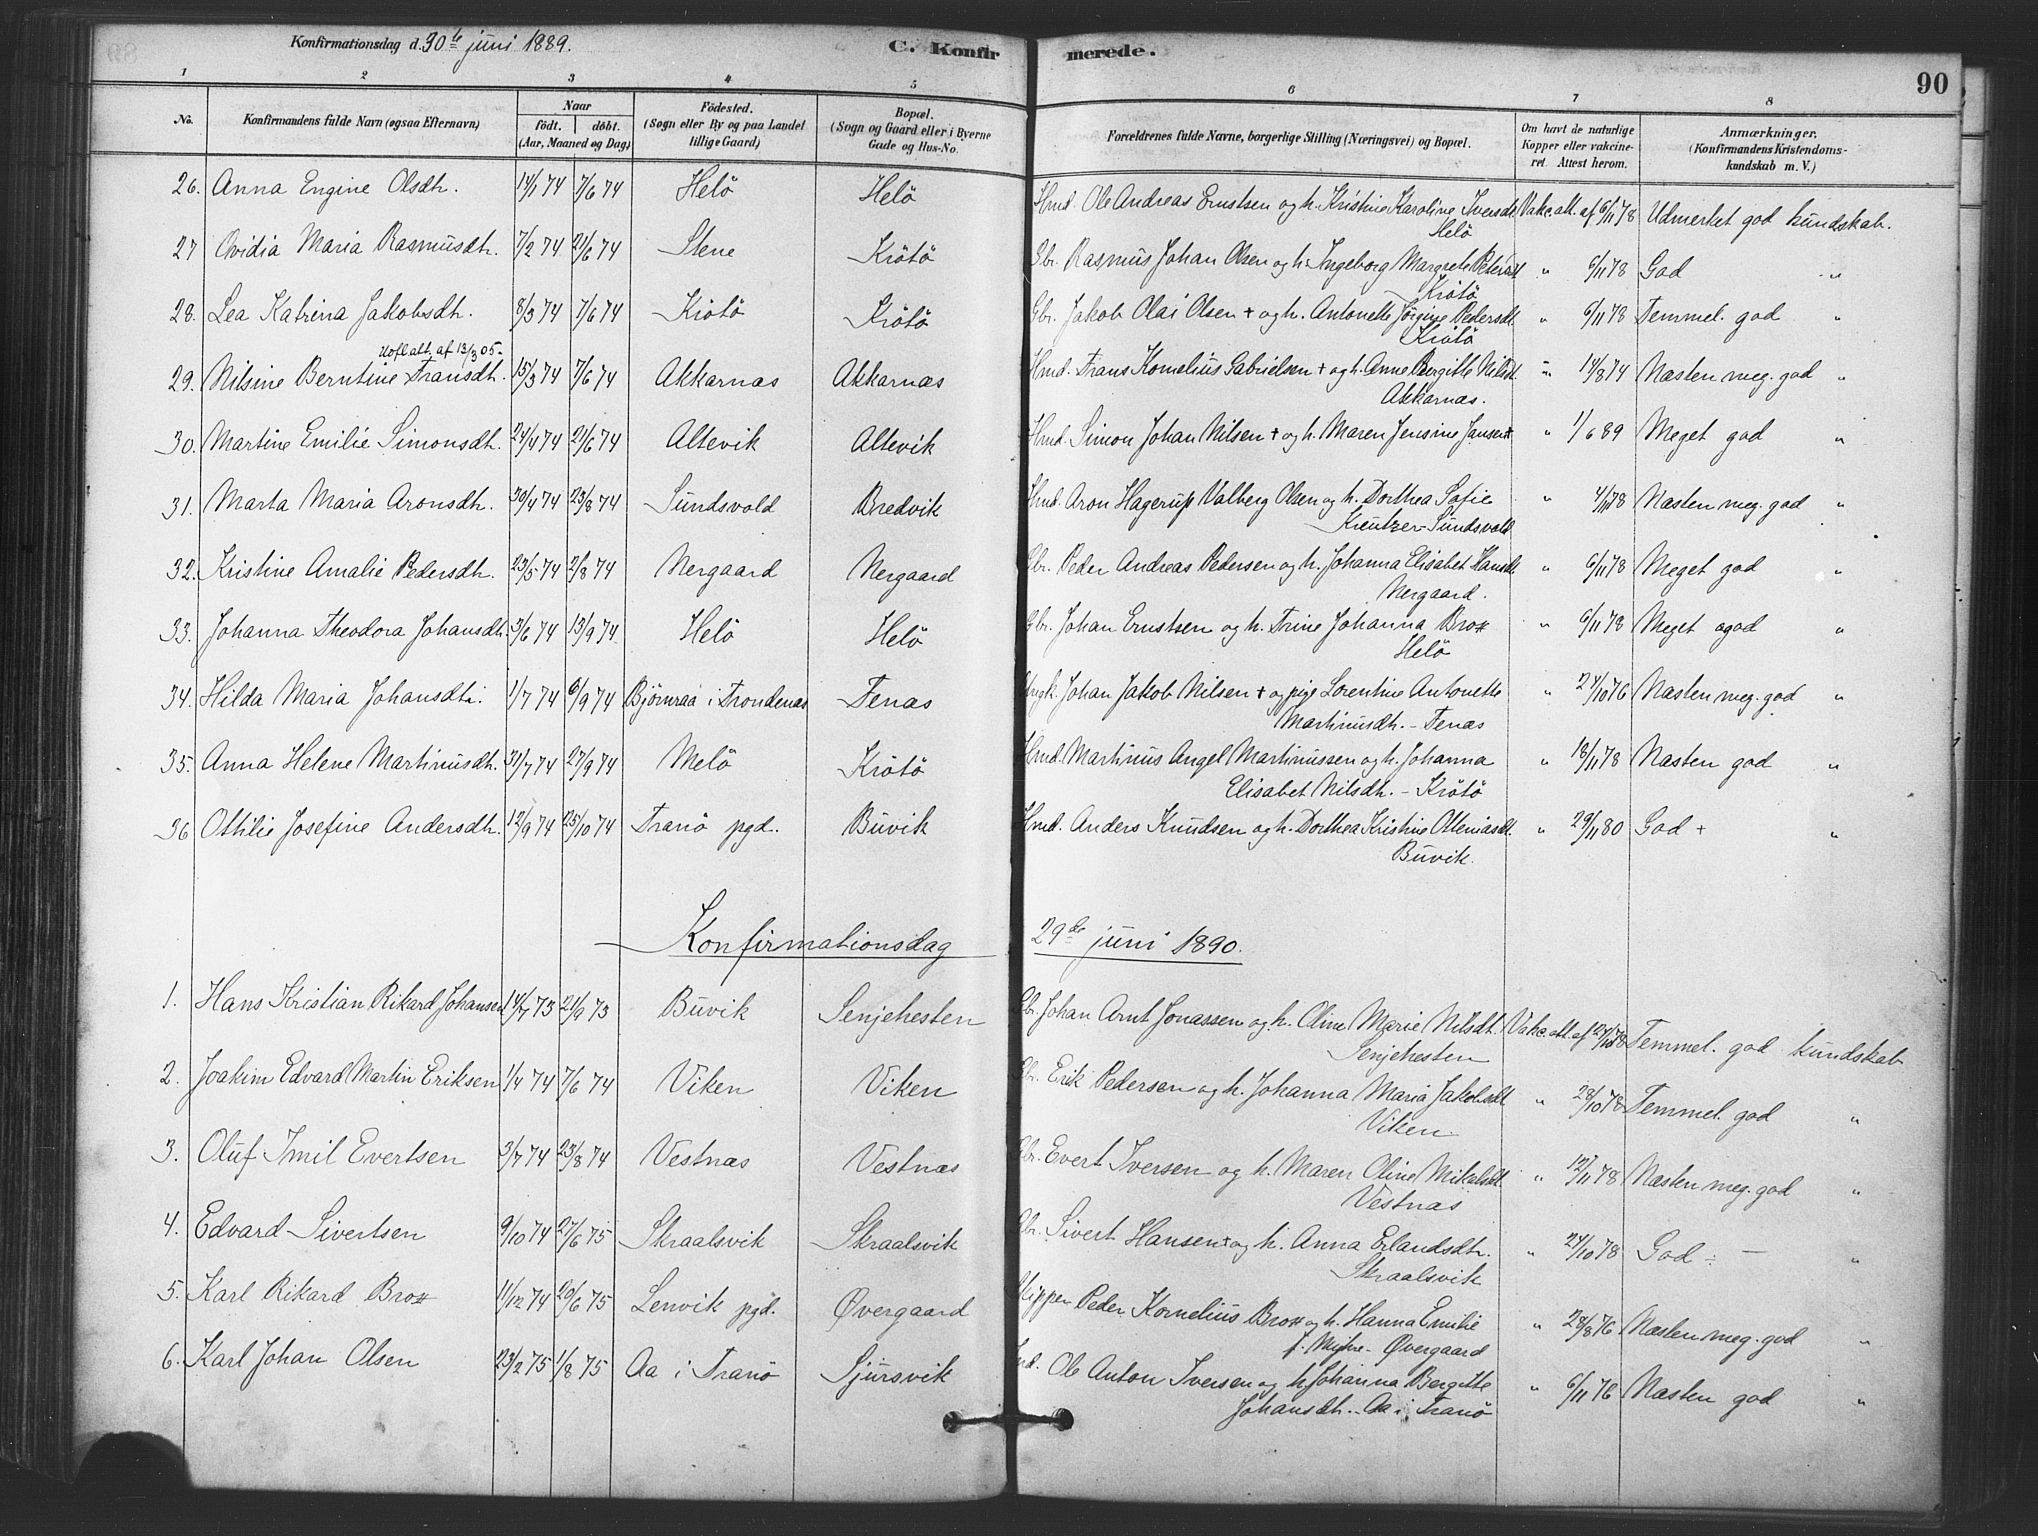 Konfirmationsdag d. 30te juni 1889. C. Konfirmerede. 90
1 2 3 4 5 6 7 8
No. Konfirmandens fulde Navn (ogsaa Efternavn) Naar födt. döbt. (Aar, Maaned og Dag) Födested. (Sogn eller By og paa Landet tillige Gaard) Bopæl. (Sogn og Gaard eller i Byerne Gade og Hus-No. Forældrenes fulde Navne, borgerlige Stilling (Næringsvei) og Bopæl. Om havt de naturlige Kopper eller vakcineret. Attest herom. Anmærkninger. (Konfirmandens Kristendomskundskab m. V.)
26. Anna Engine Olsdtr. 14/1 74 7/6 74 Helö Helö Hmd. Ole Andreas Ernstsen og h. Kristine Karoline Iversdt. Vakc. att. af 6/11 78 Udmerket god kundskab.
Helö
27 Ovidia Maria Rasmusdtr. 7/2 74 21/6 74 Stene Krötö Gbr. Rasmus Johan Olsen og h. Ingeborg Margrete Petersdt " 6/11 78 God "
Krötö
28. Lea Katrina Jakobsdtr. 8/3 74 7/6 74 Krötö Krötö Gbr. Jakob Olai Olsen + og h. Antonette Jörgine Pedersdt. " 6/11 78 Temmel. god "
Krötö
att. af 13/3 05.
29. Nilsine Berntine Fransdtr. 15/3 74 7/6 74 Akkarnæs Akkarnæs Hmd. Frans Kornelius Gabrielsen + og h. Anne Bergitte Nilsdt. " 14/8 74 Næsten meg. god "
Akkarnæs.
30. Martine Emilie Simonsdtr. 24/4 74 21/6 74 Altevik Altevik Hmd. Simon Johan Nilsen + og h. Maren Jensine Jansen+ " 1/6 89 Meget god "
31. Marta Maria Aronsdtr. 30/4 74 23/8 74 Sundsvold Bredvik Hmd. Aron Hagerup Valberg Olsen og h. Dorthea Sofie " 4/11 78 Næsten meg. god "
Kreutzer - Sundsvold
32. Kristine Amalie Pedersdtr. 23/5 74 2/8 74 Nergaard Nergaard Gbr. Peder Andreas Pedersen og h. Johanna Elisabet Hansdt. " 6/11 78 Meget god "
Nergaard.
33. Johanna Theodora Johansdtr. 3/6 74 13/9 74 Helö Helö Gbr. Johan Ernstsen og h. Trine Johanna Brox " 6/11 78 Meget god "
Helö
34. Hilda Maria Johansdtr. 1/7 74 6/9 74 Bjørnraa i Trondenæs Tenæs Ungk. Johan Jakob Nilsen + og pige Lorentine Antonette " 24/10 76 Næsten meg. god "
Martinusdtr. - Tenæs
35. Anna Helene Martinusdtr. 31/7 74 27/9 74 Melö Krötö Hmd. Martinus Angel Martinussen og h. Johanna " 18/11 78 Næsten god "
Elisabet Nilsdtr. - Krötö
36 Ottilie Josefine Andersdtr. 12/9 74 25/10 74 Tranö pgd. Buvik Hmd. Anders Knudsen og h. Dorthea Kristine Otteniasdt. " 29/11 80 God + "
Buvik.
Konfirmationsdag 29de juni 1890.
1. Hans Kristian Rikard Johansen 14/7 73 21/9 73 Buvik Senjehesten Gbr. Johan Arnt Jonassen og h. Oline Marie Nilsdt. Vakc. att. af 27/10 78 Temmel. god kundskab
Senjehesten
2. Joakim Edvard Martin Eriksen 1/4 74 7/6 74 Viken Viken Gbr. Erik Pedersen og h. Johanna Maria Jakobsdt " 28/10 78 Temmel. god "
Viken.
3. Oluf Imil Evertsen 3/7 74 23/8 74 Vestnæs Vestnæs Gbr. Evert Iversen og h. Maren Oline Mikalsdt. " 12/11 78 Næsten meg. god "
Vestnæs
4. Edvard Sivertsen 9/10 74 27/6 75 Skraalsvik Skraalsvik Gbr. Sivert Hansen+ og h. Anna Erlandsdtr. " 24/10 78 God - "
Skraalsvik
5. Karl Rikard Brox 11/12 74 20/6 75 Lenvik pgd. Øvergaard Skipper Peder Kornelius Brox og h. Hanna Emilie " 28/8 76 Næsten meg. god "
f. - Øvergaard
6. Karl Johan Olsen 23/2 75 1/8 75 Aa i Tranö Sjursvik Ind. Ole Anton Iversen og h. Johanna Bergitte " 6/11 76 Næsten god "
Johansdtr. - Aa i Tranö